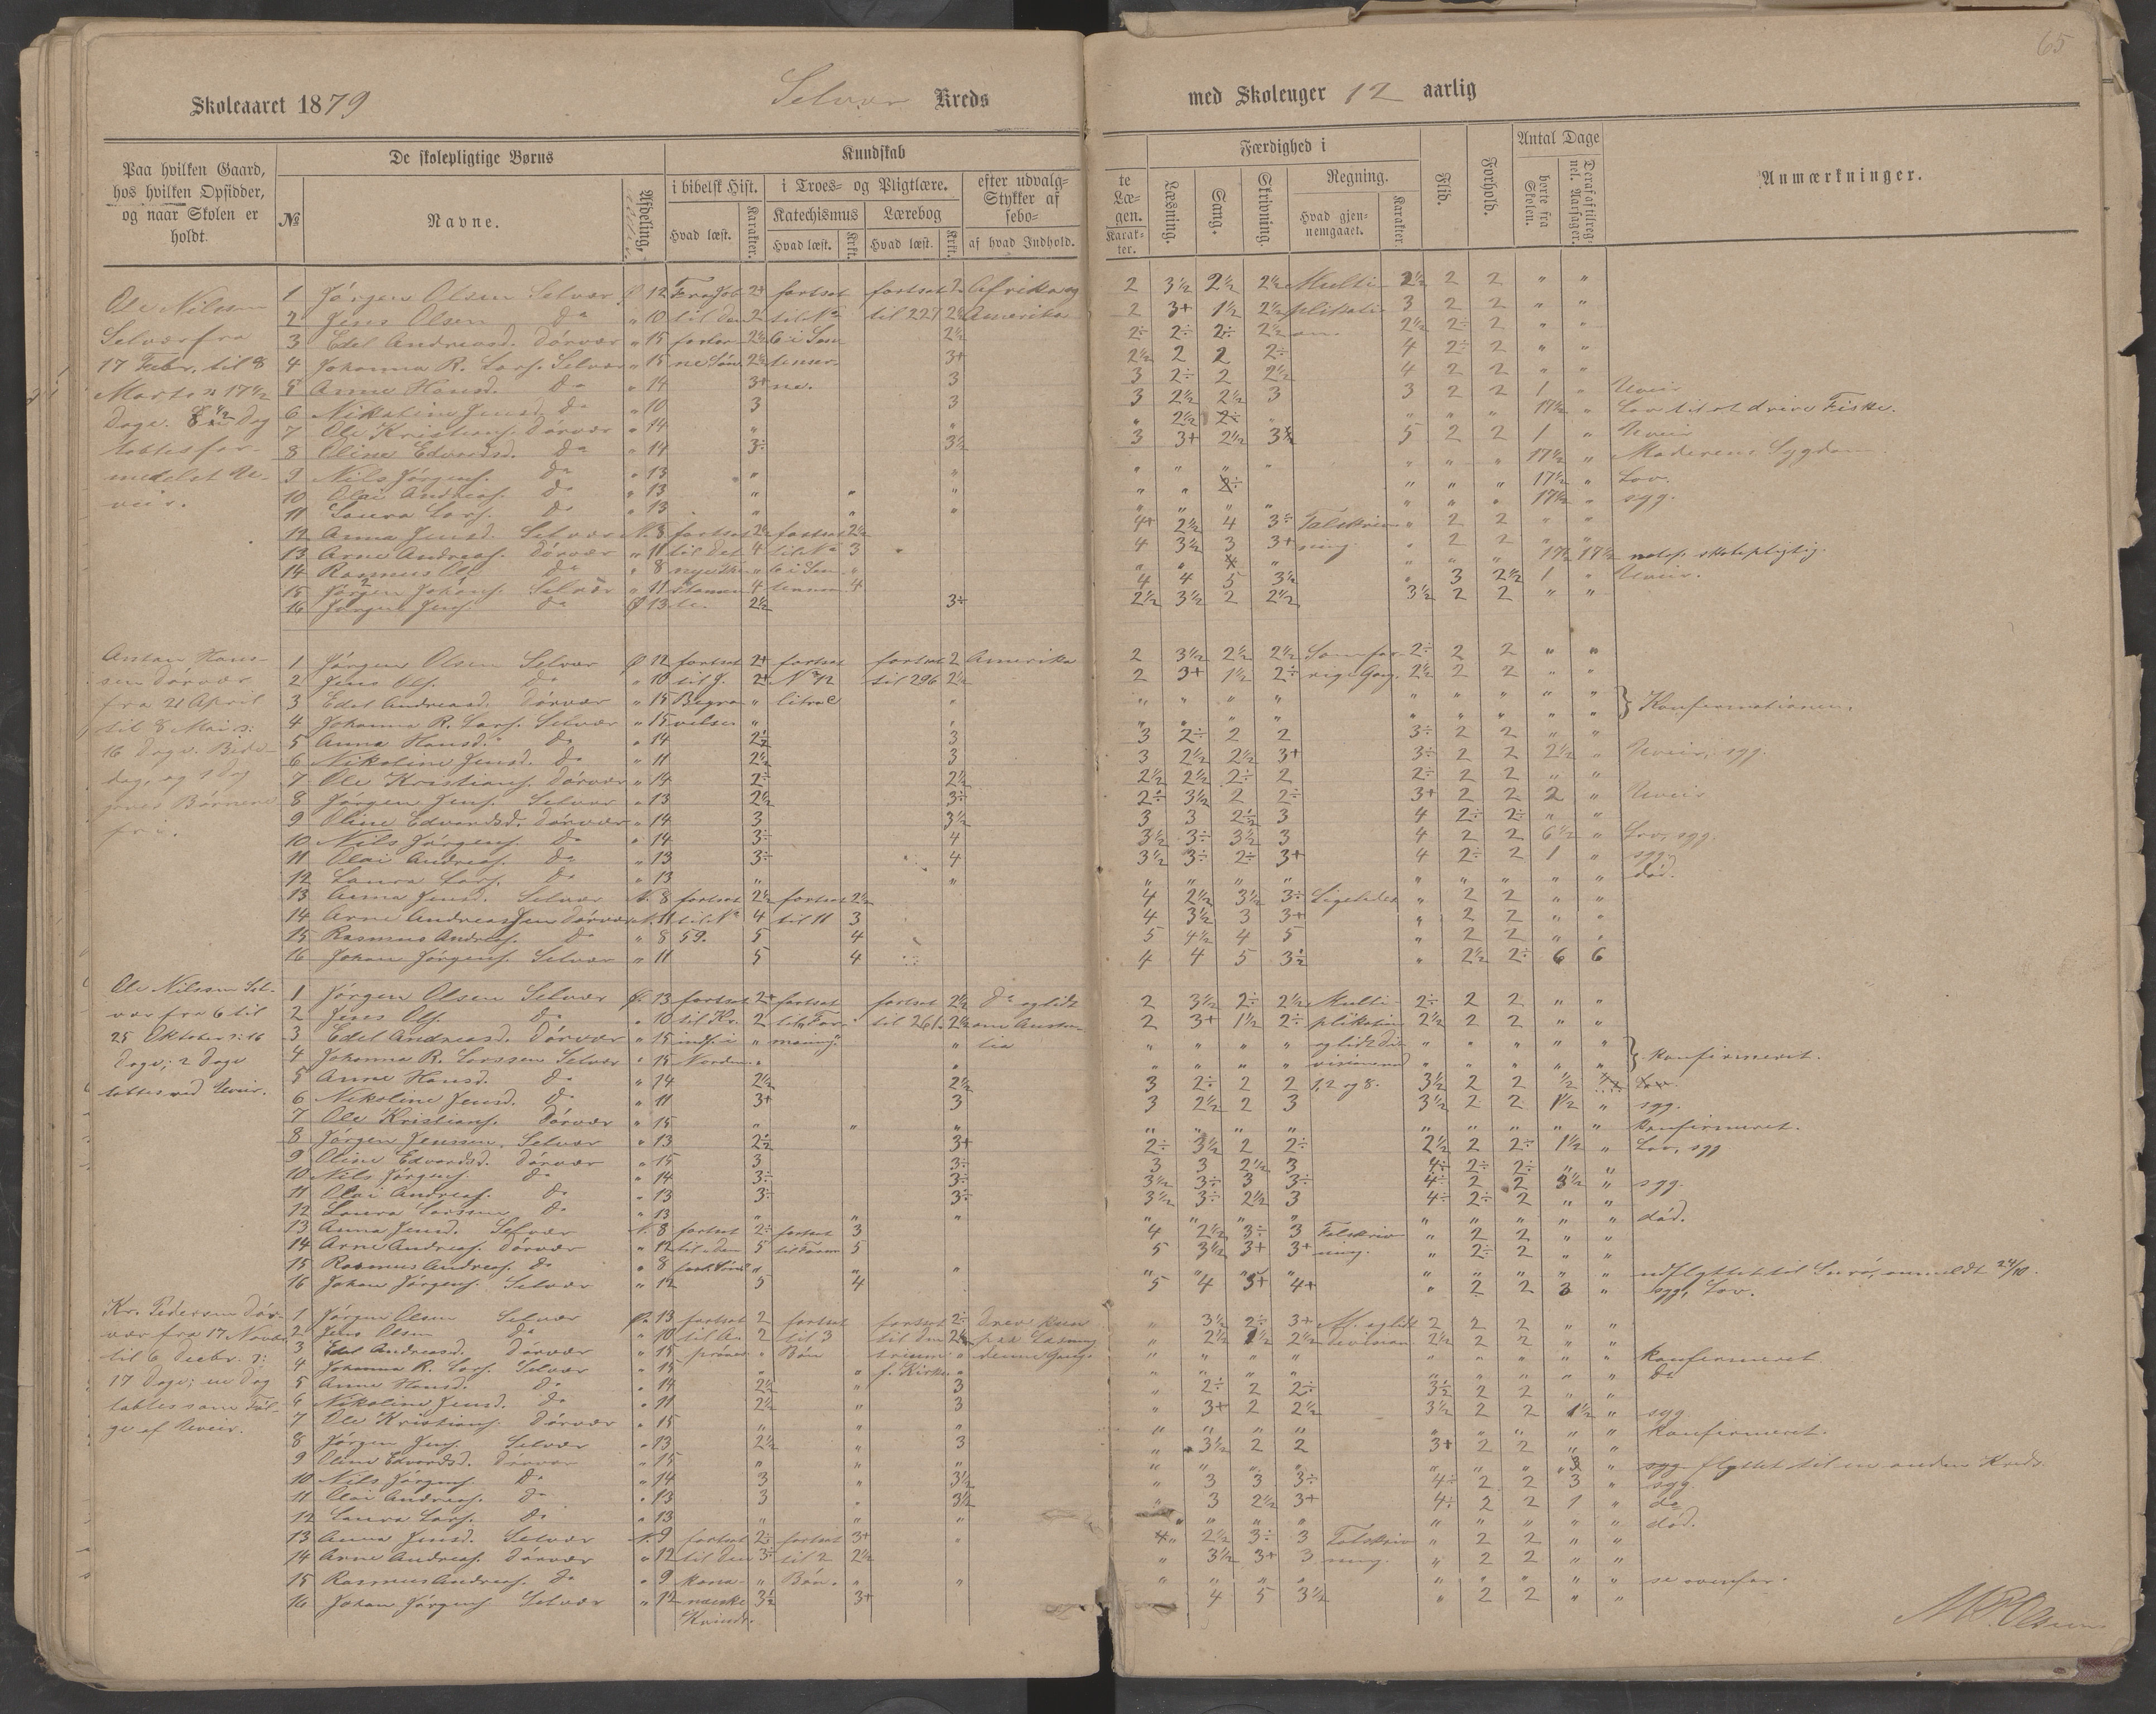 65
Skoleaaret 1879 Selvær Kreds med Skoleuger 12 aarlig
Paa hvilken Gaard, hos hvilken Opsidder, og naar Skolen er holdt.
De skolepligtige Børns
№ Navne. Afdeling.
Kundskab
i bibelsk Hist. i Troes- og Pligtlære. efter udvalg-te Stykker af Læsebogen.
Hvad læst. Karakter. Katechismus Hvad læst. Krkt. Lærebog Hvad læst. Krkt. af hvad Indhold. Karakter.
Færdighed i
Læsning. Sang. Skrivning. Regning. Hvad gjennemgaaet. Karakter.
Flid. Forhold.
Antal Dage
borte fra Skolen. Deraf af tilregnel. Aarsager.
Anmærkninger.
Ole Nilssen
Selvær fra
17 Febr. til 8
Marts : 17½
Dage. ½ Dag
tabtes for-
medelst Ue-
veir.
1 Jørgen Olsen Selvær Ø 12 2+ fortsat fortsat 2 Afrika og 2 3½ 2½ 2½ Multi- 2½ 2 2 " "
2 Jens Olsen Do " 10 til den 2 til No til 227 2½ Amerika 2 3+ 1½ 2½ plikati- 3 2 2 " "
3 Edel Andreasd. Dørvær " 15 2½ 6 i Sen 2½ 2÷ 2÷ 2÷ 2½ on. 2½ 2÷ 2 " "
4 Johanna R. Lars. Selvær " 15 2½ tenser- 3+ 2½ 2 2 2÷ 4 2÷ 2 " "
5 Anne Hansd. Do " 14 3+ ne. 3 3 2÷ 2 2½ 4 2 2 " "
6 Nikoline Jensd. Do " 10 3 3 3 2½ 2½ 3 3 2 2 1 " Uveir
7 Ole Kristians. Dørvær " 14 " " " 2½ 2÷ " " " " 17½ " Lov til at drive Fiske.
8 Oline Edvardsd. Do " 14 3÷ 3½ 3 3+ 2½ 3½ 5 2 2 1 " Uveir
9 Nils Jørgens. Do " 13 " " " " " " " " " 17½ " Moderens Sygdom.
10 Olai Andreas. Do " 13 " " " " " 2÷ " " " 17½ " Lov.
11 Laura Lars. Do " 13 " " " " " " " " " 17½ " syg.
12 Anna Jensd. Selvær N. 8 fortsat 2½ fortsat 2½ 4+ 2½ 4 3÷ Talskriv- " 2 2 " "
13 Arne Andreas. Dørvær " 11 til det 4 til No 3 " 4 3½ 3 3+ ning. " 2 2 " "
14 Rasmus Ols. Do " 8 nye " 6 i Sen- " " " " " " " 17½ 17½ skolepligtig.
15 Jørgen Johans. Selvær " 11 4 4 4 4 5 3½ " 3 2½ 1 " Uveir.
16 Jørgen Jens. Do Ø 13 te. 2½ 3÷ 2½ 3½ 2 2½ 3½ 2 2 " "
Anton Hans-
sen Dørvær
fra 21 April
til 8 Mai :
16 Dage. Bede-
dag, og 1 Dag
gaves Børnene
fri.
1 Jørgen Olsen Selvær Ø 12 fortsat 2+ fortsat fortsat 2 Amerika 2 3½ 2½ 2½ Som for- 2÷ 2 2 " "
2 Jens Ols. Do " 10 til J. 2+ No 12 til 296 2½ 2 3+ 1½ 2÷ rige Gang. 2½ 2 2 " "
3 Edel Andreasd. Dørvær " 15 Begra- " " " " " " " " " " "
4 Johanna R. Lars. Selvær " 15 velse " " " " " " " " " " " } Konfirmationen.
5 Anna Hansd. Do " 14 2½ 3 3 2÷ 2 2 3÷ 2 2 " "
6 Nikoline Jensd. Do " 11 2½ 3 3 2½ 2½ 3+ 3÷ 2 2 2½ " Uveir, syg.
7 Ole Kristians. Dørvær " 14 2÷ 2½ 2½ 2½ 2÷ 2 2÷ 2 2 " "
8 Jørgen Jens. Selvær " 13 2½ 3÷ 2÷ 3½ 2 2÷ 3+ 2 2 2 " Uveir
9 Oline Edvardsd. Dørvær " 14 3 3½ 3 3 2½ 3 4 2÷ 2÷ " "
10 Nils Jørgens. Do " 14 3÷ 4 3½ 3÷ 3½ 3 4 2 2 6½ " Lov, syg.
11 Olai Andreas. Do " 13 3÷ 4 3½ 3÷ 2÷ 3+ 4 2÷ 2 1 " syg.
12 Laura Lars. Do " 13 " " " " " " " " " " " død.
13 Anna Jensd. Selvær N. 8 fortsat 2½ fortsat 2½ 4 2½ 3½ 3÷ Ligeledes " 2 2 " "
14 Arne Andreassen Dørvær N. 11 til No 4 til 11 3 4 3½ 3 3+ " 2 2 " "
15 Rasmus Andreas. Do " 8 59. 5 4 5 4½ 4 5 " 2 2 " "
16 Johan Jørgens. Selvær " 11 5 4 4 4 5 3½ " 2½ 2÷ 6 6
Ole Nilssen Sel-
vær fra 6 til
25 Oktober : 16
Dage; 2 Dage
tabtes ved Uveir.
1 Jørgen Olsen Selvær Ø. 13 fortsat 2+ fortsat fortsat 2½ Do og lidt 2 3½ 2÷ 2½ Multi- 2÷ 2 2 " "
2 Jens Ols. Do " 10 til Kr. 2 til For- til 261. 2½ om Austra- 2 3+ 1½ 2÷ plikation 2½ 2 2 " "
3 Edel Andreasd. Dørvær " 15 indt. i " maning. " lia " " " " og lidt di- " " " " "
4 Johanna R. Larssen Selvær " 15 " " " " " " " " " " " } Konfirmeret.
5 Anne Hansd. Do " 14 2½ 2½ 3 2÷ 2 2 1, 2 og 8. 3½ 2 2 ½
6 Nikoline Jensd. Do " 11 3+ 3 3 2½ 2 3 3½ 2 2 1½ " syg.
7 Ole Kristians. Dørvær " 15 " " " " " " " " " " " " Konfirmeret.
8 Jørgen Jenssen. Selvær " 13 2½ 3+ 2÷ 3½ 2 2÷ 2½ 2 2÷ 1½ " Lov, syg
9 Oline Edvardsd. Dørvær " 15 3 3÷ 3 3 2½ 3 4÷ 2÷ 2÷ " "
10 Nils Jørgens. Do " 14 3÷ 3÷ 3½ 3÷ 3 3÷ 4÷ 2 2 3½ " syg.
11 Olai Andreas. Do " 13 3÷ 3÷ 3½ 3÷ 2½ 3 4÷ 2÷ 2 " "
12 Laura Larssen Do " 13 " " " " " " " " " " " " død.
13 Anna Jensd. Selvær N. 8 fortsat 2÷ fortsat 3 4 2½ 3÷ 3 Talskriv- " 2 2 " "
14 Arne Andreas. Dørvær " 12 til den 5 5 5 3½ 3+ 3+ ning. " 2÷ 2 " "
15 Rasmus Andreas. Do " 8 " " " " " " " " " " " udflyttet til anmeldt 24/10.
16 Johan Jørgens. Selvær " 12 5 4 5 4 5+ 4+ " 2 2 3 " syg, Lov.
Kr. Pedersen Dør-
vær fra 17 Novbr.
til 6 Decbr. :
17 Dage; en Dag
tabtes som Føl-
ge af Uveir.
1 Jørgen Olsen Selvær Ø. 13 fortsat 2 fortsat fortsat 2÷ " 3½ 2÷ 3+ M. og lidt 2 2 2 " "
2 Jens Olsen Do " 10 til A. 2 til 3 til den 2½ paa Læsning " 2½ 1½ 2½ division 2½ 2 2 " "
3 Edel Andreasd. Dørvær " 15 prøves " Bøn " denne Gang. " " " " " " " " " Konfirmeret.
4 Johanna R. Lars. Selvær " 15 " " f. Kirke. " " " " " " " " " " do
5 Anne Hansd. Do " 14 2½ " 3 " 2÷ 2 2÷ 3½ 2 2 " "
6 Nikoline Jensd. Do " 11 2½ " 3 " 3+ 2 2½ 3½ 2 2 1½ " syg
7 Ole Kristians. Dørvær " 15 " " " " " " " " " " " " Konfirmeret.
8 Jørgen Jens. Selvær " 13 2½ " 3 " 3½ 2 2 3+ 2 2 " "
9 Oline Edvardsd. Dørvær " 15 " " " " " " " " " " 3 " syg. flyttet til en anden Kreds.
10 Nils Jørgens. Do " 14 3 " 3½ " 3 3 3÷ 4÷ 2 2 3 " syg.
11 Olai Andreas. Do " 13 3 " 3½ " 3 2½ 3+ 4÷ 2 2 1 " do
12 Laura Lars. Do " 13 " " " " " " " " " " " " død.
13 Anna Jensd. Selvær N. 9 fortsat 2÷ fortsat 3+ " 2½ 3÷ 3 Talskriv- " 2 2 " "
14 Arne Andreas. Dørvær " 12 til den 3÷ til 2 2½ " 3½ 3+ 3 ning. " 2 2 " "
15 Rasmus Andreas. Do " 9 kana- " Bøn. " " " " " " " " " " " se ovenfor.
16 Johan Jørgens. Selvær " 12 næiske 3½ 3+ 4 5 3½ " 2 2 " "
Kvinde.